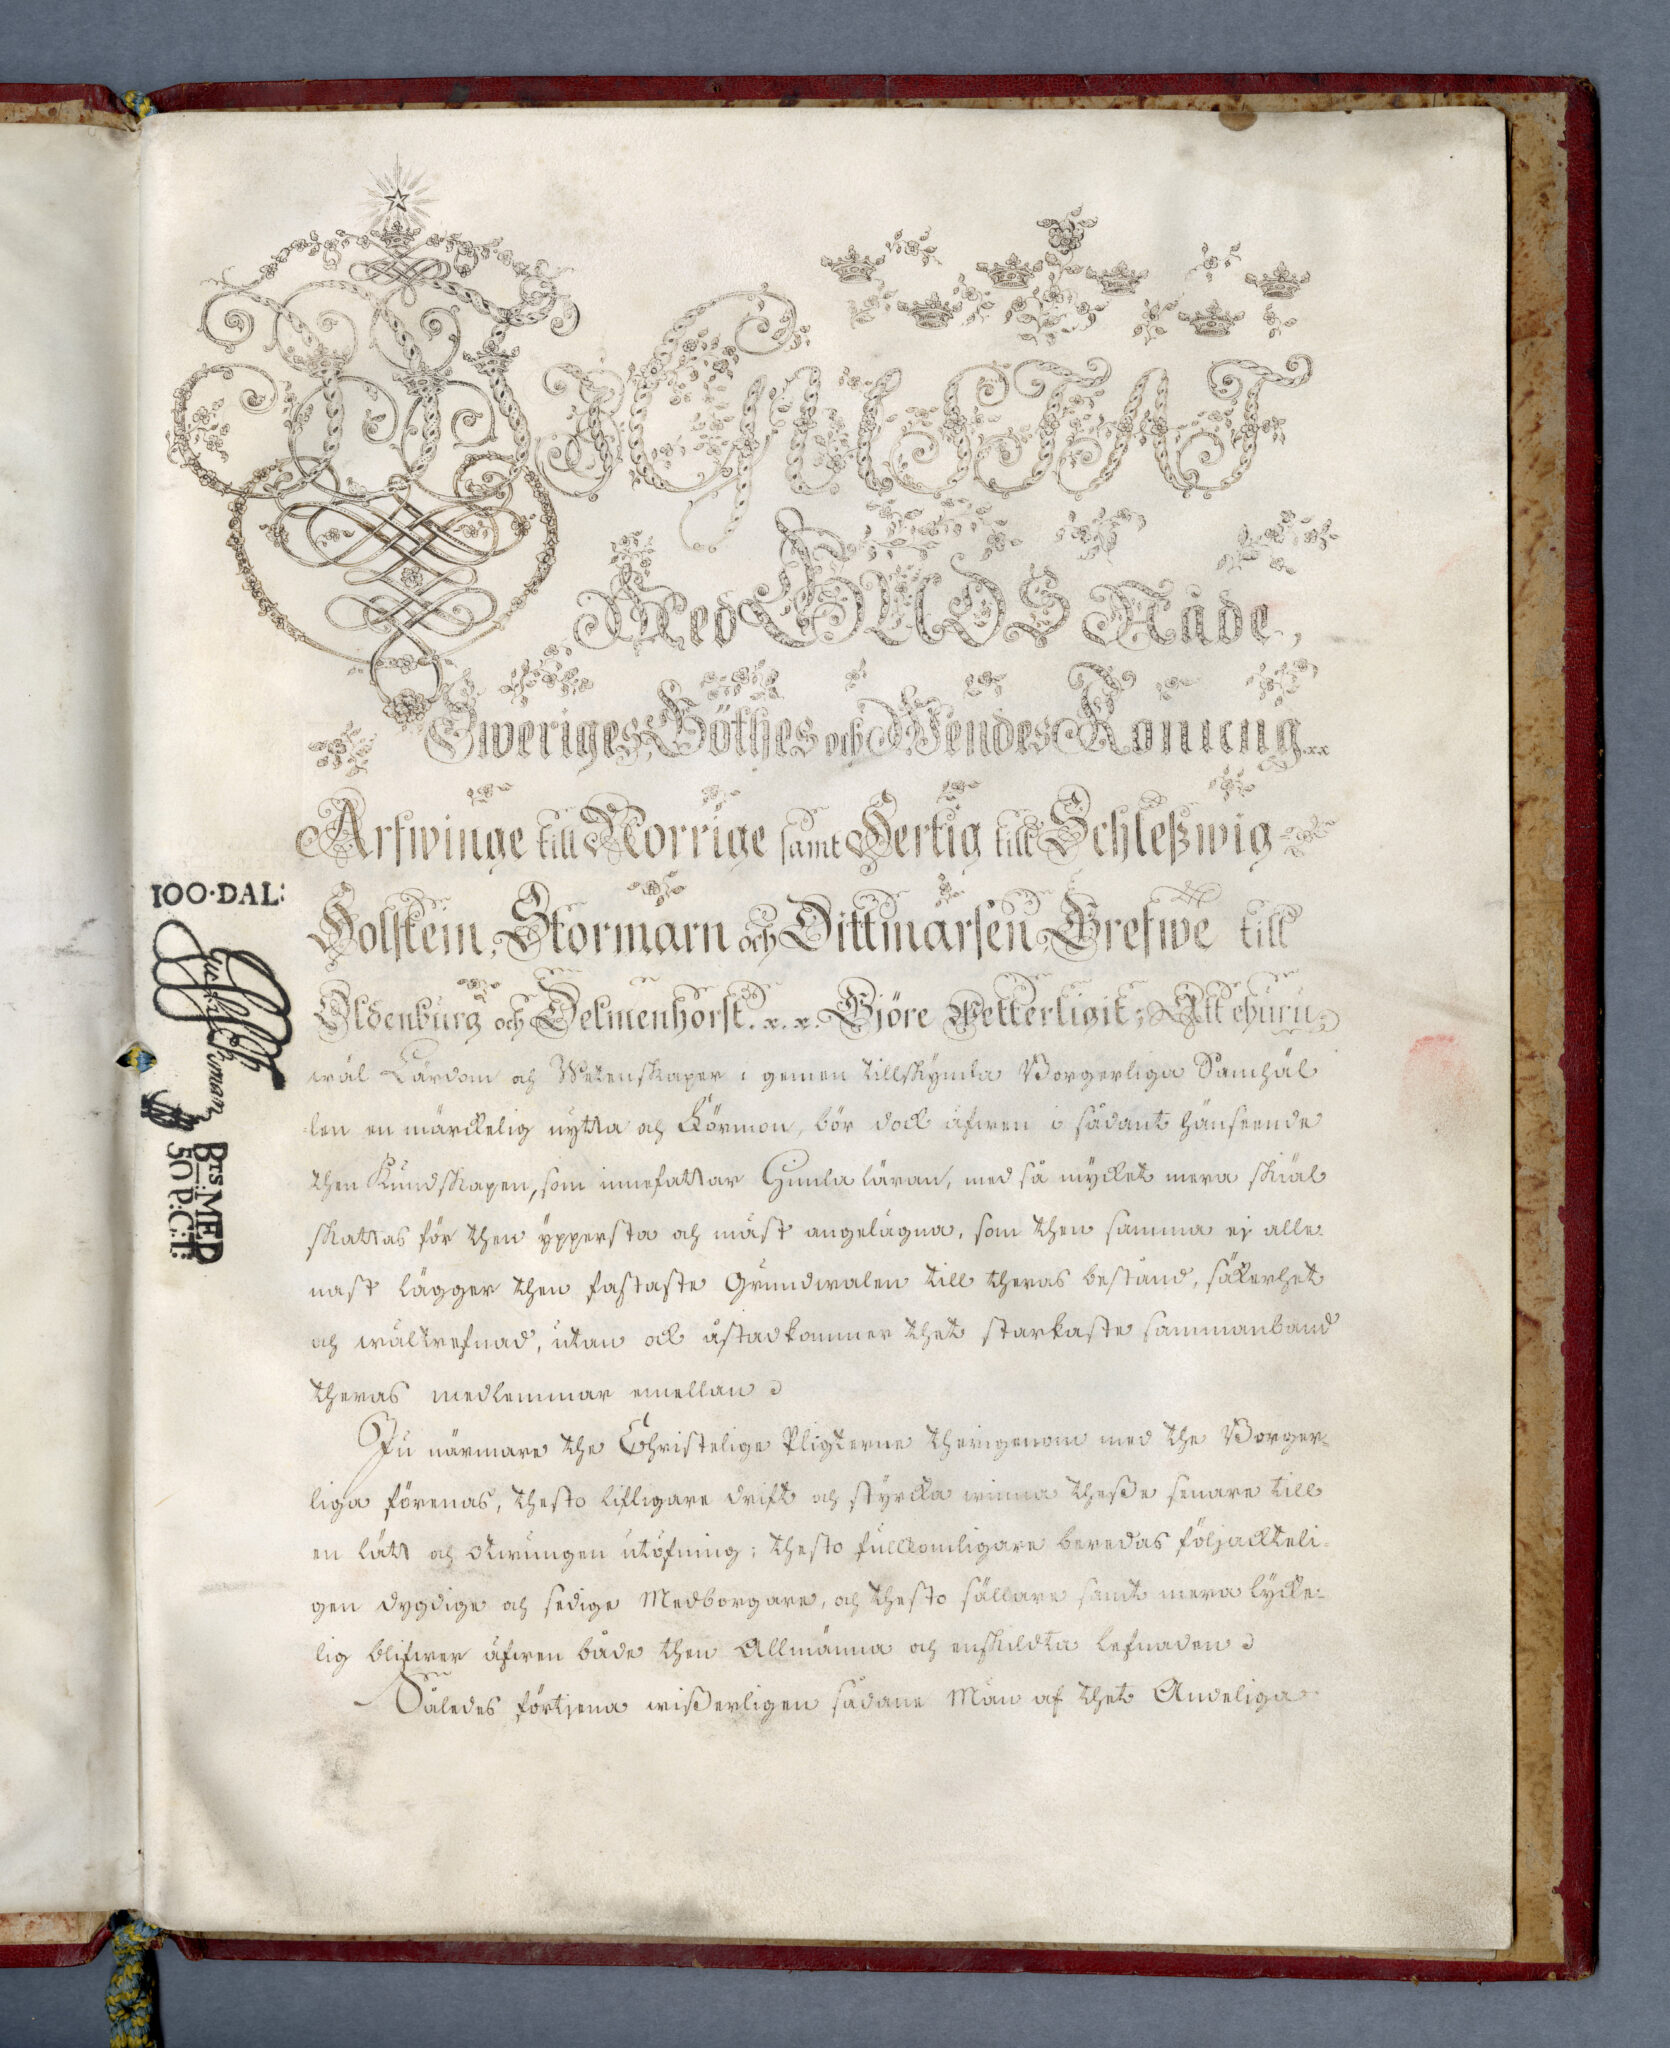 WI GUSTAF
Med GUDS Nåde,
Sweriges, Göthes och Wendes Konung. x.x
Arfwinge till Norrige samt Hertig till Schleßwig
Holstein, Stormarn och Dittmarsen, Grefwe till
Oldenburg och Delmenhorst. x. x. Giöre Wetterligit; Att ehuru
wäl Lärdom och Wetenskaper i gemen tillskynda Borgerliga Samhäl
len en märckelig nytta och förmon, bör dock äfwen i sådant hänseende
then Kundskapen, som innefattar Gudaläran, med så mycket mera skiäl
skattas för then yppersta och mäst angelägna, som then samma ej alle-
nast lägger then fastaste Grundwalen till theras bestånd, säkerhet
och wältrefnad, utan ock åstadkommer thet starkaste sammanband
theras medlemmar emellan
Ju närmare the Christelige Pligterne therigenom med the Borger-
liga förenas, thesto lifligare drift och styrcka winna theße senare till
en lätt och otwungen utöfning; thesto fullkomligare beredas följackteli-
gen dygdige och sedige Medborgare, och thesto sällare samt mera lycke-
lig blifwer äfwen både then Allmänna och enskildta lefnaden
Således förtjena wißerligen sådane Män af thet Andeliga
100·DAL:
Brs. MED
50 P:C:T: